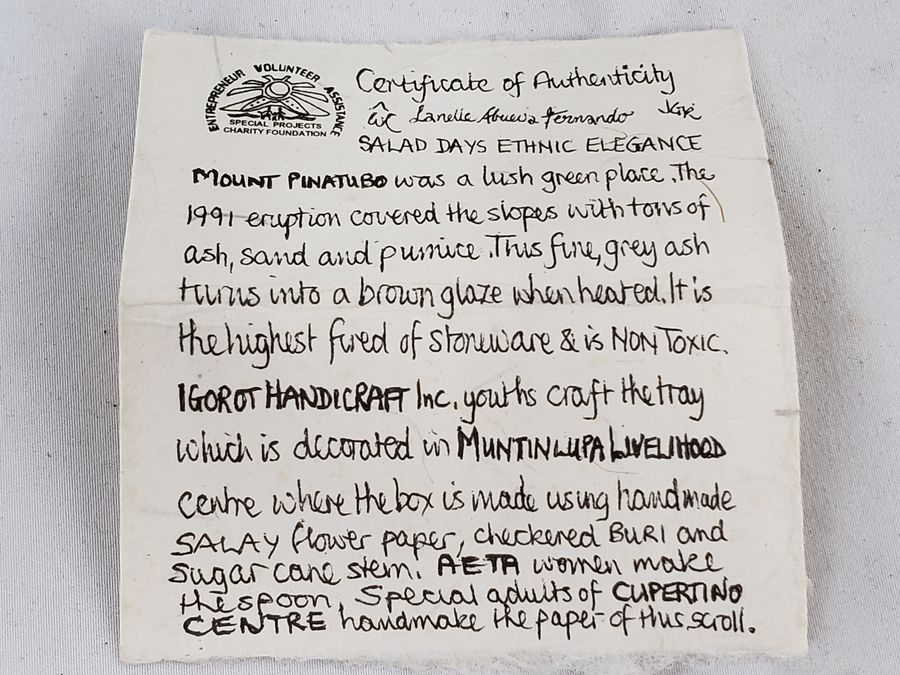 ENTREPRENEUR VOLUNTEER ASSISTANCE
SPECIAL PROJECTS
CHARITY FOUNDATION
Certificate of Authenticity
Lanelle Abueva Fernando
SALAD DAYS ETHNIC ELEGANCE
MOUNT PINATUBO was a lush green place. The
1991 eruption covered the slopes with tons of
ash, sand and pumice. This fine, grey ash
turns into a brown glaze when heated. It is
the highest fired of stoneware & is NON TOXIC.
IGOROT HANDICRAFT Inc. youths craft the tray
which is decorated in MUNTINLUPA LIVELIHOOD
centre where the box is made using handmade
SALAY flower paper, checkered BURI and
sugar cane stem. AETA women make
the spoon. Special adults of CUPERTINO
CENTRE handmake the paper of this scroll.